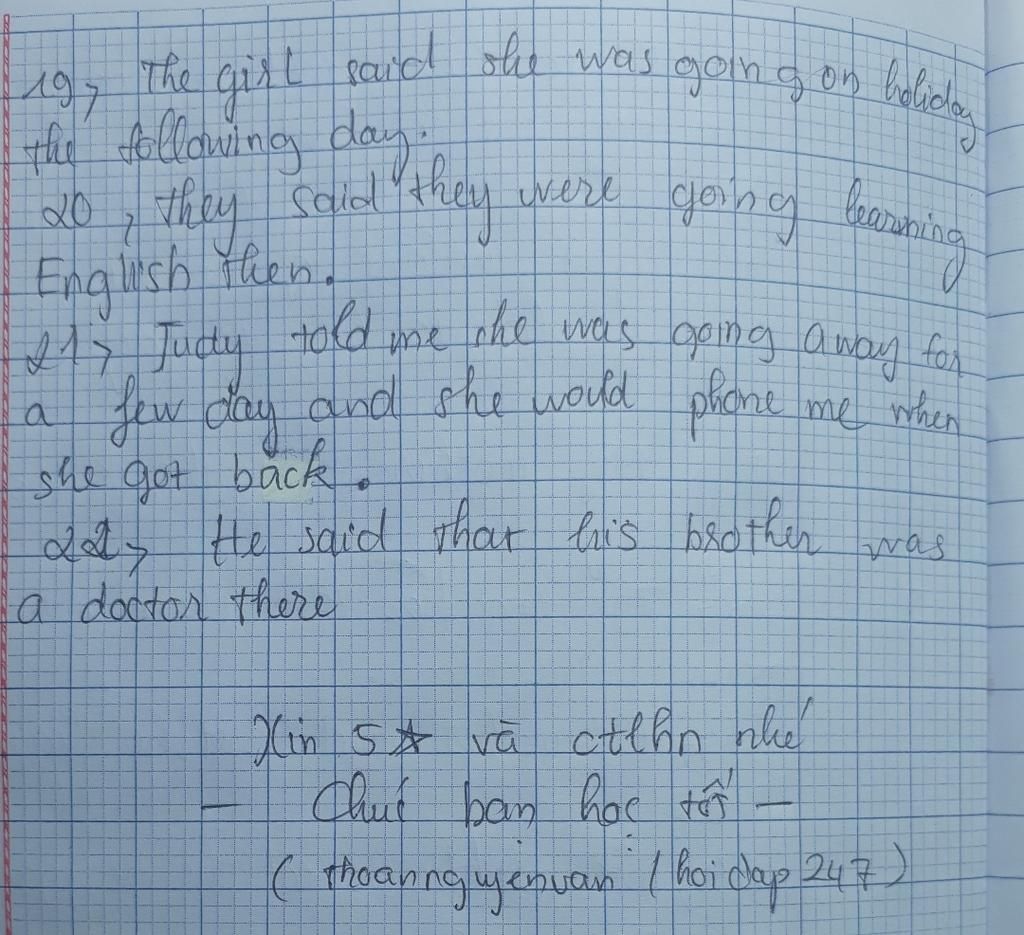 19, The girl said she was going on holiday
the following day.
20, they said they were going learning
English then.
21, Judy told me she was going away for
a few day and she would phone me when
she got back.
22, He said that his brother was
a doctor there
Xin 5☆ và ctlhn nhé
- Chúc bạn học tốt -
(thoannguyenvan / hoidap247)